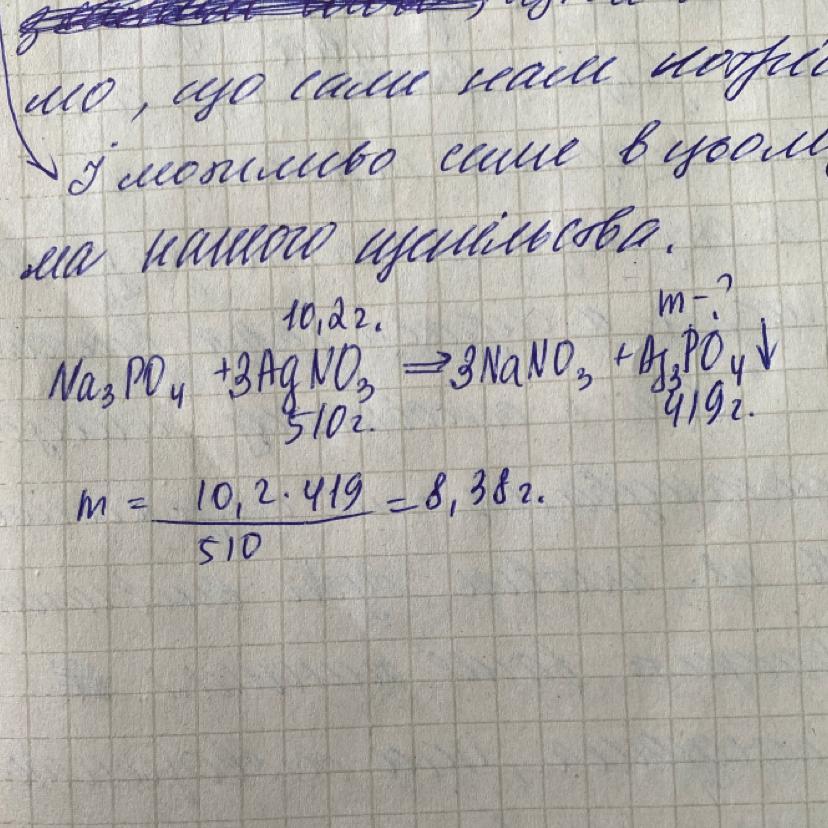 мо, що саме нам
І можливо саме в цьому
ма нашого суспільства.
10,2 г. m - ?
Na₃PO₄ + 3AgNO₃ ⇒ 3NaNO₃ + Ag₃PO₄↓
510 г. 419 г.
m = 10,2 · 419 / 510 = 8,38 г.